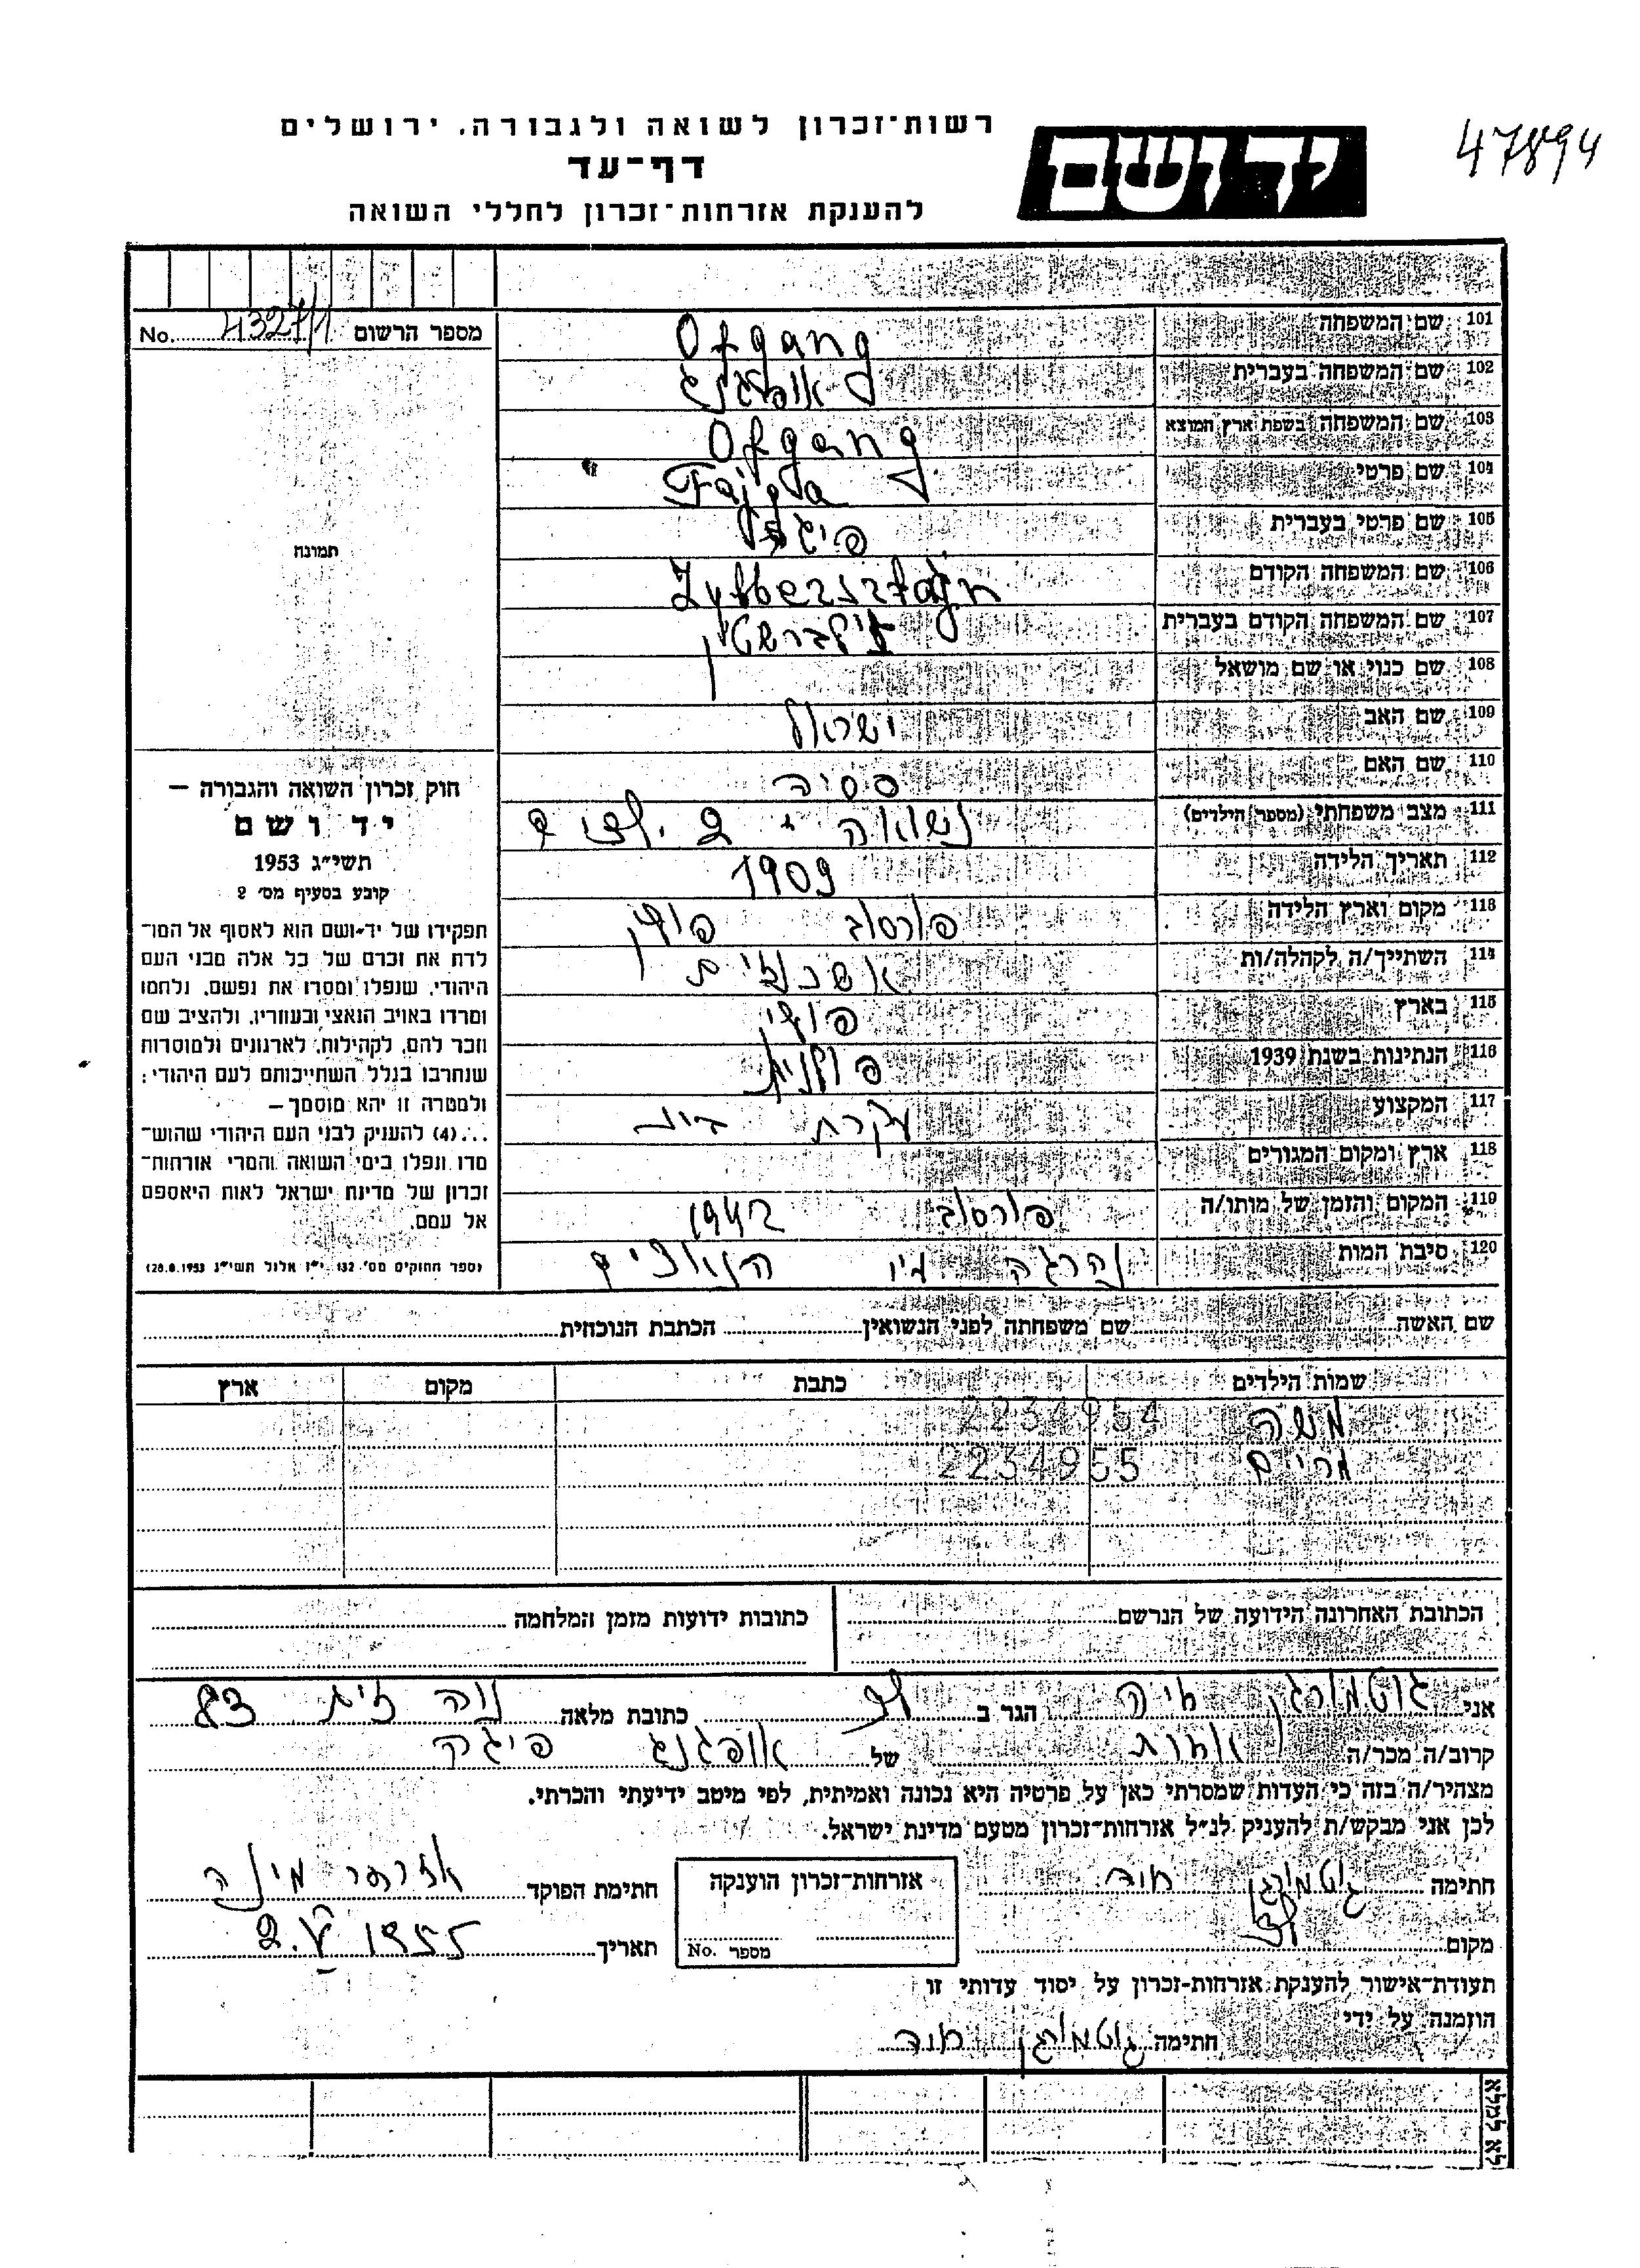 רשות-זכרון לשואה ולגבורה, ירושלים
דף-עד
להענקת אזרחות-זכרון לחללי השואה
יד ושם
47894
מספר הרשום No. 4327/1
101 שם המשפחה Ofgang
102 שם המשפחה בעברית אופגנג
103 שם המשפחה בשפת ארץ המוצא Ofgang
104 שם פרטי Fajga
105 שם פרטי בעברית פיגה
106 שם המשפחה הקודם Zylbersztajn
107 שם המשפחה הקודם בעברית זילברשטין
108 שם כנוי או שם מושאל
109 שם האב ישראל
110 שם האם
111 מצב משפחתי (מספר הילדים) נשואה + 2 ילדים
112 תאריך הלידה 1909
113 מקום וארץ הלידה פולין
114 השתייך/ה לקהלה/ות אשכנזית
115 בארץ פולין
116 הנתינות בשנת 1939 פולנית
117 המקצוע עקרת בית
118 ארץ ומקום המגורים
119 המקום והזמן של מותו/ה 1942
120 סיבת המות נהרגה הנאצים
תמונה
חוק זכרון השואה והגבורה –
יד ושם
תשי״ג 1953
קובע בסעיף מס׳ 2
תפקידו של יד-ושם הוא לאסוף אל המו-
לדת את זכרם של כל אלה מבני העם
היהודי, שנפלו ומסרו את נפשם, נלחמו
ומרדו באויב הנאצי ובעוזריו, ולהציב שם
וזכר להם, לקהילות, לארגונים ולמוסדות
שנחרבו בגלל השתייכותם לעם היהודי;
ולמטרה זו יהא מוסמך –
...(4) להעניק לבני העם היהודי שהוש-
מדו ונפלו בימי השואה והמרי אזרחות-
זכרון של מדינת ישראל לאות היאספם
אל עמם.
(ספר החוקים מס׳ 132, י״ז אלול תשי״ג 28.8.1953)
שם האשה שם משפחתה לפני הנשואין הכתבת הנוכחית
שמות הילדים כתבת מקום ארץ
משה 2234954
מרים 2234955
הכתובת האחרונה הידועה של הנרשם כתובות ידועות מזמן המלחמה
אני גוטמורגן הגר ב לוד כתובת מלאה נוה זית 83
קרוב/ה מכר/ה אחות של אופגנג פיגה
מצהיר/ה בזה כי העדות שמסרתי כאן על פרטיה היא נכונה ואמיתית, לפי מיטב ידיעתי והכרתי.
לכן אני מבקש/ת להעניק לנ״ל אזרחות-זכרון מטעם מדינת ישראל.
חתימה גוטמורגן אזרחות-זכרון הוענקה חתימת הפוקד
מקום לוד מספר No. תאריך 2.V 1955
תעודת-אישור להענקת אזרחות-זכרון על יסוד עדותי זו
הוזמנה על ידי
חתימה גוטמורגן
לא למלא